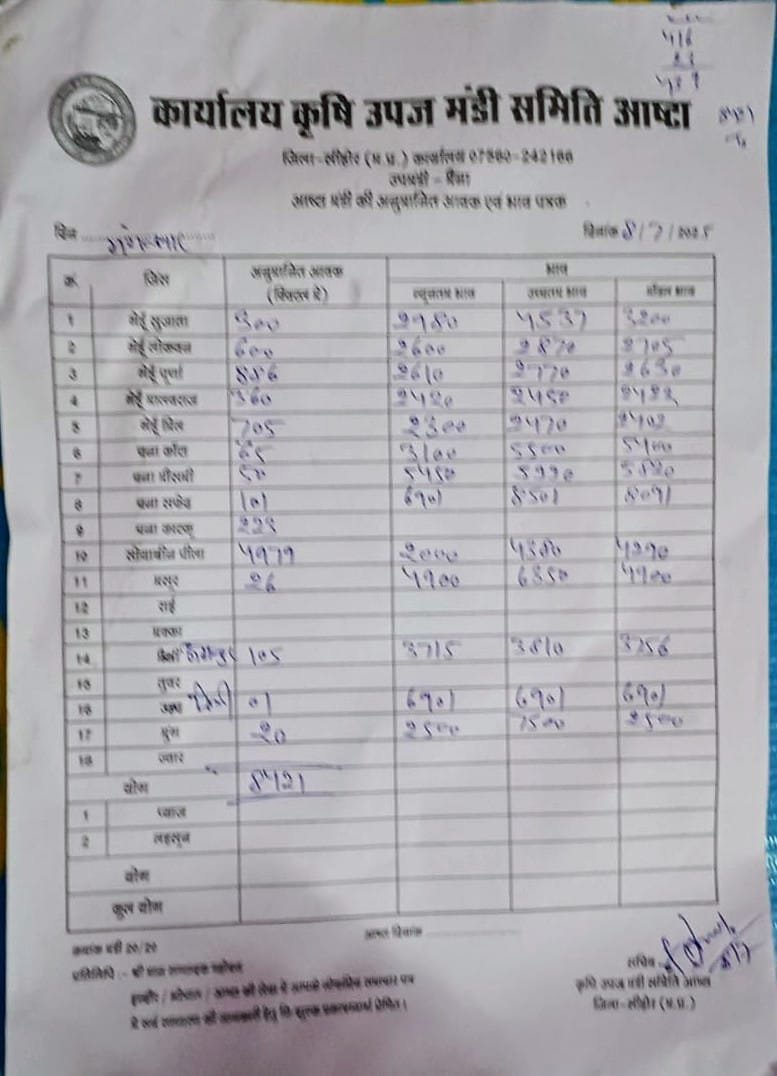 416
कार्यालय कृषि उपज मंडी समिति आष्टा
जिला-सीहोर (म.प्र.) कार्यालय 07560-242166
उपमंडी -
आष्टा मंडी की अनुमानित आवक एवं भाव पत्रक
दिन मंगलवार दिनांक 8/7/2025
क्रं. जिंस अनुमानित आवक (क्विंटल में) भाव
न्यूनतम भाव उच्चतम भाव मॉडल भाव
1 गेहूँ सुजाता 300 2980 4537 3200
2 गेहूँ लोकवन 600 2600 2870 2705
3 गेहूँ पूर्णा 886 2610 2770 2630
4 गेहूँ मालवराज 360 2420 2450
5 गेहूँ मिल 705 2300 2470 2402
6 चना काँटा 65 3100 5500 5400
7 चना मौसमी 50 5450 5820
8 चना सफेद 101 6901 8501 8091
9 चना काटकू
10 सोयाबीन पीला 4979 2000 4380 4290
11 मसूर 26 4900 6350 4900
12 राई
13 मक्का
14 105 3715 3810 3756
15 तुवर
16 01 6901 6901 6901
17 मुंग 20 2500 7500 2500
18 ज्वार
योग 8421
1 प्याज
2 लहसून
योग
कूल योग
आष्टा दिनांक
क्रमांक मंडी 20/20
प्रतिलिपि :- श्री मान सम्पादक महोदय
इन्दौर / भोपाल / आष्टा की सेवा में आपके लोकप्रिय समाचार पत्र
में सर्व साधारण की जानकारी हेतु निःशुल्क प्रकाशनार्थ प्रेषित।
सचिव
कृषि उपज मंडी समिति आष्टा
जिला-सीहोर (म.प्र.)